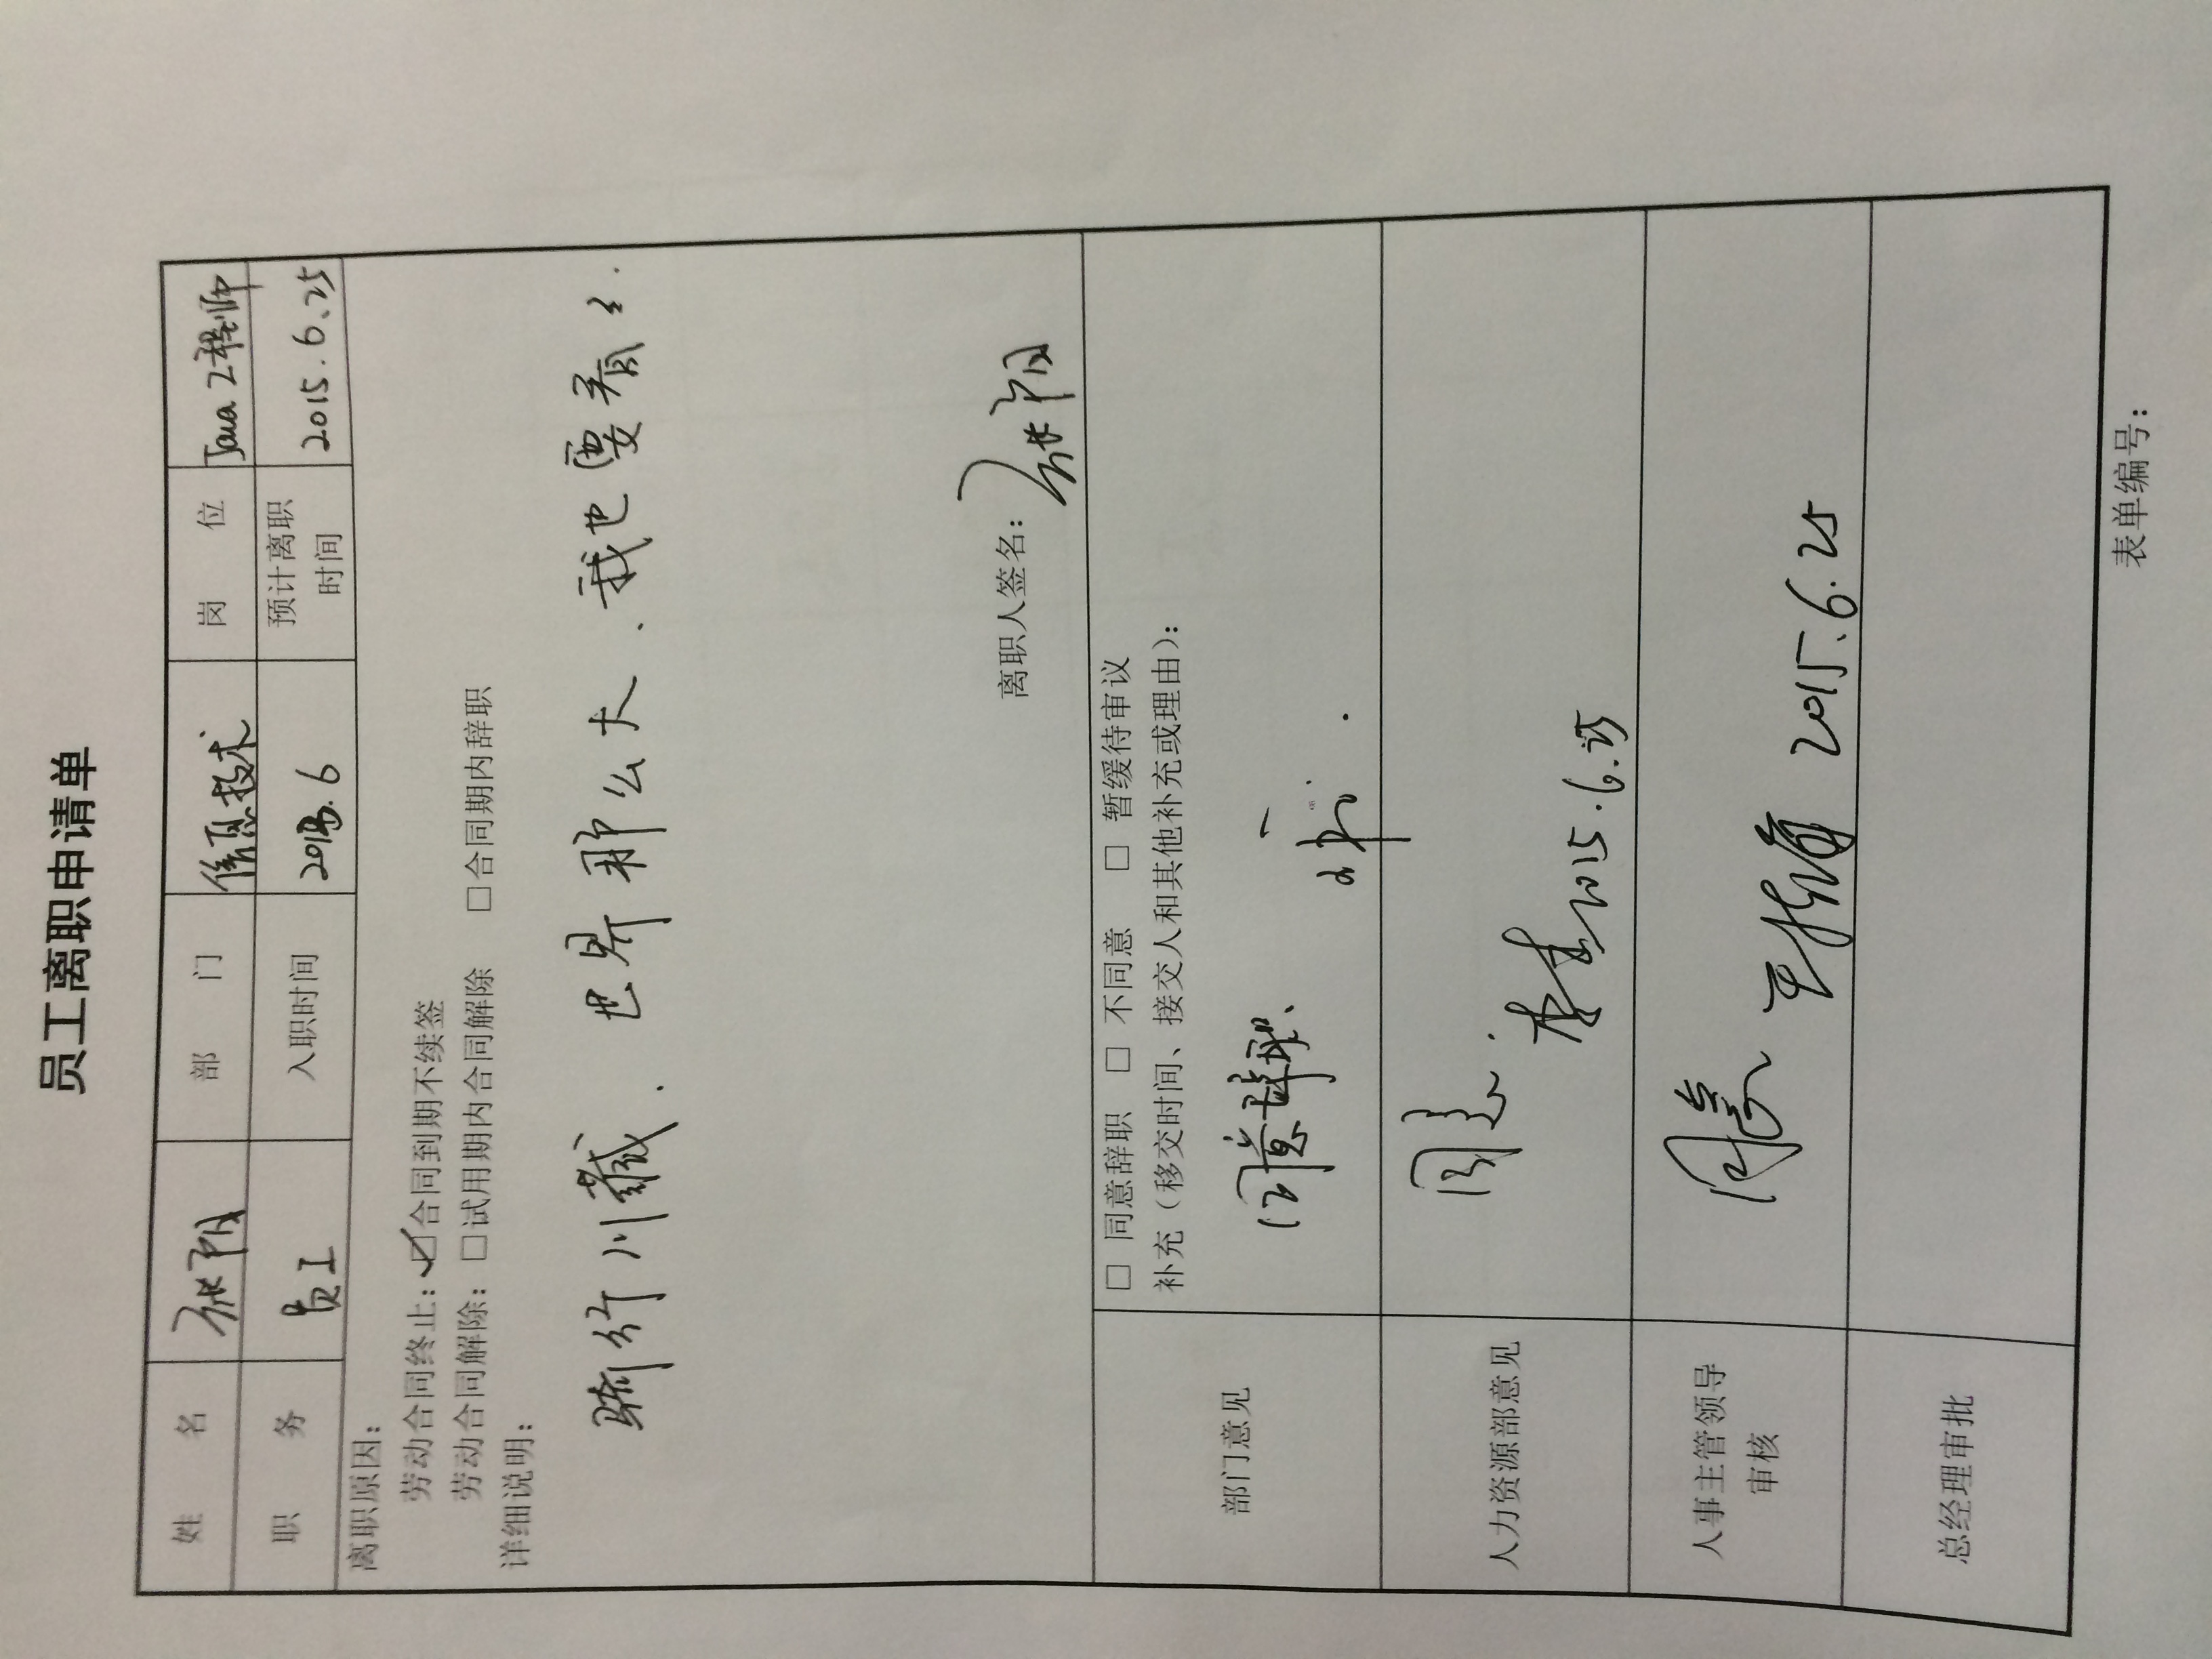 员工离职申请单
姓 名 张阳 部 门 信息技术 岗 位 Java工程师
职 务 员工 入职时间 2013.6 预计离职时间 2015.6.25
离职原因:
劳动合同终止:☑合同到期不续签
劳动合同解除:□试用期内合同解除 □合同期内辞职
详细说明:
骑行川藏. 世界那么大.我也要看看.
离职人签名: 张阳
□ 同意辞职 □ 不同意 □ 暂缓待审议
补充(移交时间、接交人和其他补充或理由):
部门意见
同意辞职.
人力资源部意见
同意.
2015.6.25
人事主管领导
审核
同意
2015.6.25
总经理审批
表单编号: